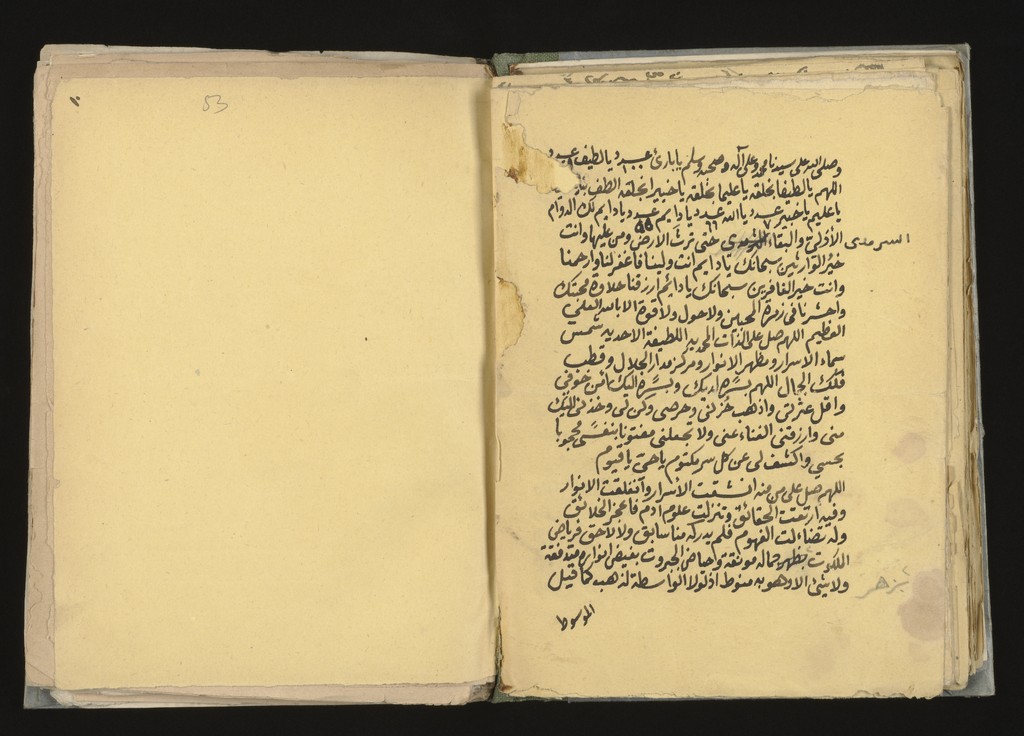 53
وصلى الله على سيدنا محمد وعلى آله وصحبه وسلم يا بارئ عبدد يا لطيف عبدد
اللهم يا لطيفا بخلقه يا عليما بخلقه يا خبيرا بخلقه الطف بنا
يا عليم يا خبير عدد يا الله عدد يا دايم عدد يا دايم لك الدوام
٦٦ ٥٥
الأولى والبقاء السرمدى حتى ترث الارض ومن عليها وانت
السرمدى
خير الوارثين سبحانك يا دايم انت ولينا فاغفر لنا وارحمنا
وانت خير الغافرين سبحانك يا دائم ارزقنا حلاوة محبتك
واحشرنا فى زمرة المحبين ولا حول ولا قوة الا بالله العلي
العظيم اللهم صل على الذات المحمديه اللطيفة الاحديه شمس
سماء الاسرار ومظهر الانوار ومركز مدار الجلال وقطب
فلك الجمال اللهم بسره لديك وبسيره اليك آمن خوفي
واقل عثرتى واذهب حزنى وحرصى وكن لى وخذنى اليك
منى وارزقنى الفناء عنى ولا تجعلنى مفتونا بنفسى محجوبا
بحسي واكشف لى عن كل سر مكتوم يا حى يا قيوم
اللهم صل على من منه انشقت الأسرار وانفلقت الانوار
وفيه ارتقت الحقائق وتنزلت علوم آدم فاعجز الخلائق
وله تضاءلت الفهوم فلم يدركه منا سابق ولا لاحق فرياض
الملكوت بظهر جماله مونقة وحياض الجبروت بفيض انواره متدفقة
بزهر
ولا شئ الا وهو به منوط اذ لولا الواسطة لذهب كما قيل
الموسوط